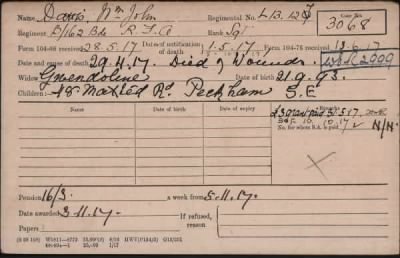 Name Davis, Wm John Regimental No. L13.12
Case No. 3068
Regiment D/162 Bde R.F.A Rank Sgt
Form 104-88 received 28.5.17 Date of notification of death 1.5.17 Form 104-76 received 13.6.17
Date and cause of death 29.4.17. Died of Wounds.
Widow Gwendoline Date of birth 21.9.93.
Children: 48 Maxted Rd. Peckham S.E
Name Date of birth Date of expiry Remarks
£3 grant paid 31.5.17
No. for whom S.A. is paid N/N
Pension 16/3 a week from 5.11.17.
Date awarded 3.11.17. If refused, reason
Explanatory Notes: